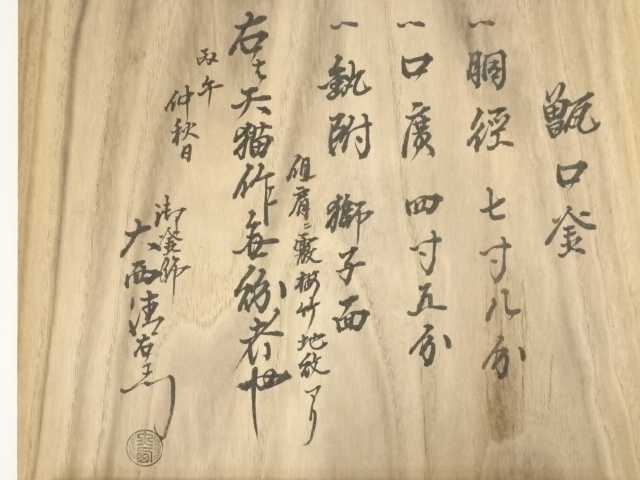 甑口釜
一胴径 七寸八分
一口廣 四寸五分
一執附 獅子面
但肩ニ霰 地紋アリ
右ハ天猫作無紛者也
丙午
仲秋日
御釜師
大西清右衛門